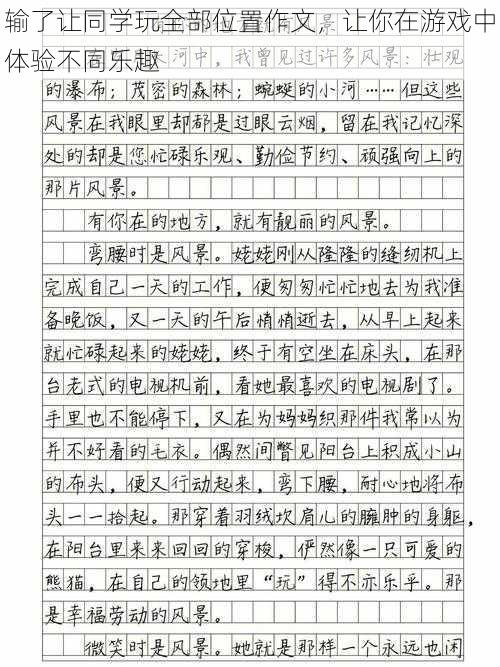 输了让同学玩全部位置作文，让你在游戏中
体验不同乐趣
风景
河中，我曾见过许多风景：壮观
的瀑布；茂密的森林；蜿蜒的小河……但这些
风景在我眼里却都是过眼云烟，留在我记忆深
处的却是您忙碌乐观、勤俭节约、顽强向上的
那片风景。
有你在的地方，就有靓丽的风景。
弯腰时是风景。姥姥刚从隆隆的缝纫机上
完成自己一天的工作，便匆匆忙忙地去为我准
备晚饭，又一天的午后悄悄逝去，从早上起来
就忙碌起来的姥姥，终于有空坐在床头，在那
台老式的电视机前，看她最喜欢的电视剧了。
手里也不能停下，又在为妈妈织那件我常以为
并不好看的毛衣。偶然间瞥见阳台上积成小山
的布头，便又行动起来，弯下腰，耐心地将布
头一一拾起。那穿着羽绒坎肩儿的臃肿的身躯，
在阳台里来来回回的穿梭，俨然像一只可爱的
熊猫，在自己的领地里“玩”得不亦乐乎。那
是幸福劳动的风景。
微笑时是风景。她就是那样一个永远也闲